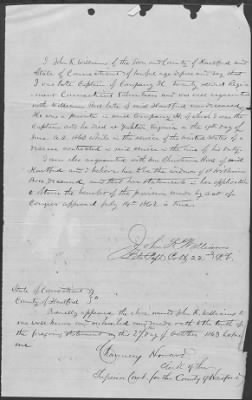 I John K. Williams of the town and County of Hartford and
State of Connecticut of lawful age depose and say that
I was late Captain of Company H. twenty second Regi-
ment Connecticut Volunteers and was well acquainted
with William late of said Hartford now deceased.
He was a private in said Company H. of which I was the
Captain and he died at Virginia on the day of
June A.D. 1863 while in the service of the United States of a
disease contracted in said service in the line of his duty.
I am also acquainted with Mrs Christina of said
Hartford and I believe her to be the widow of
deceased, and that her statements in her application
to obtain the benefit of the pension made by act of
Congress approved July 14th 1862 is true.
John K. Williams
Late Capt. Co. H 22nd Rgt.
State of Connecticut
County of Hartford ss
Personally appeared the above named John K. Williams to
me well known and made oath to the truth of
the foregoing statement on the 27 day of October 1863 before
me
Chauncey Howard
Clerk of the
Superior Court for the County of Hartford